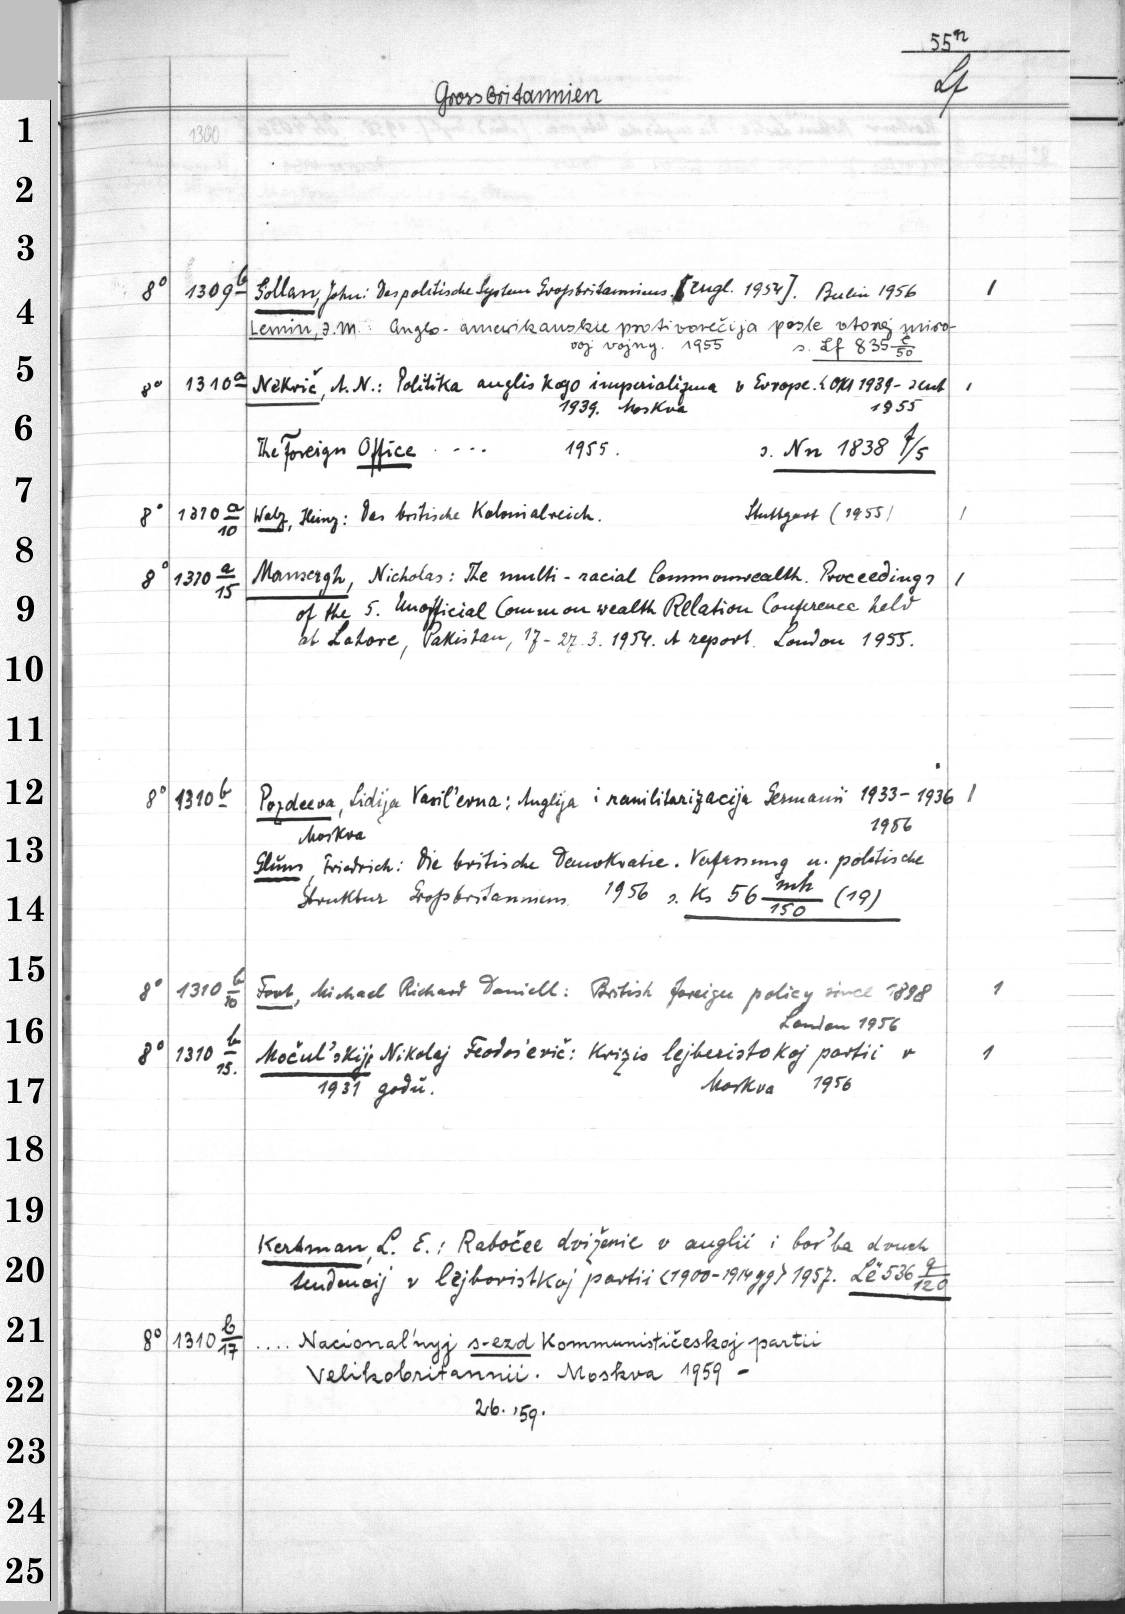 55ⁿ
Lf
Grossbritannien
1 1300
2
3
8° 1309 b Gollan, John: Das politische System Großbritanniens. [Engl. 1954]. Berlin 1956 1
4 Lemin, I.M.: Anglo-amerikanskie protivorečija posle vtoroj miro-
voj vojny. 1955 s. Lf 835 c/50
5
8° 1310 a Nekrič, A. N.: Politika anglijskogo imperializma v Evrope. <Okt 1938- sent 1
6 1939. Moskva 1955
The Foreign Office . --- 1955. s. Nn 1838 f/5
7
8° 1310 a/10 Walz, Heinz: Das britische Kolonialreich. Stuttgart (1955) 1
8
8° 1310 a/15 Mansergh, Nicholas: The multi-racial Commonwealth. Proceedings 1
9 of the 5. Unofficial Commonwealth Relation Conference held
at Lahore, Pakistan, 17-27.3.1954. A report. London 1955.
10
11
12 8° 1310 b Pozdeeva, Lidija Vasil'evna: Anglija i remilitarizacija Germanii 1933-1936 1
Moskva 1956
13 Glum, Friedrich: Die britische Demokratie. Verfassung u. politische
14 Struktur Großbritanniens. 1956 s. Ks 56 mh/150 (19)
15
8° 1310 b/10 Foot, Michael Richard Daniell: British foreign policy since 1898 1
16 London 1956
8° 1310 b/15. Močul'skij, Nikolaj Feodos'evič: Krizis lejboristskoj partii v 1
17 1931 godu. Moskva 1956
18
19
Kertman, L. E.: Rabočee dviženie v anglii i bor'ba dvuch
20 tendencij v lejboristkoj partii <1900-1914gg> 1957. Lë 536 q/120
21 8° 1310 b/17 .... Nacional'nyj s-ezd Kommunističeskoj partii
22 Velikobritannii. Moskva 1959 -
26. '59.
23
24
25